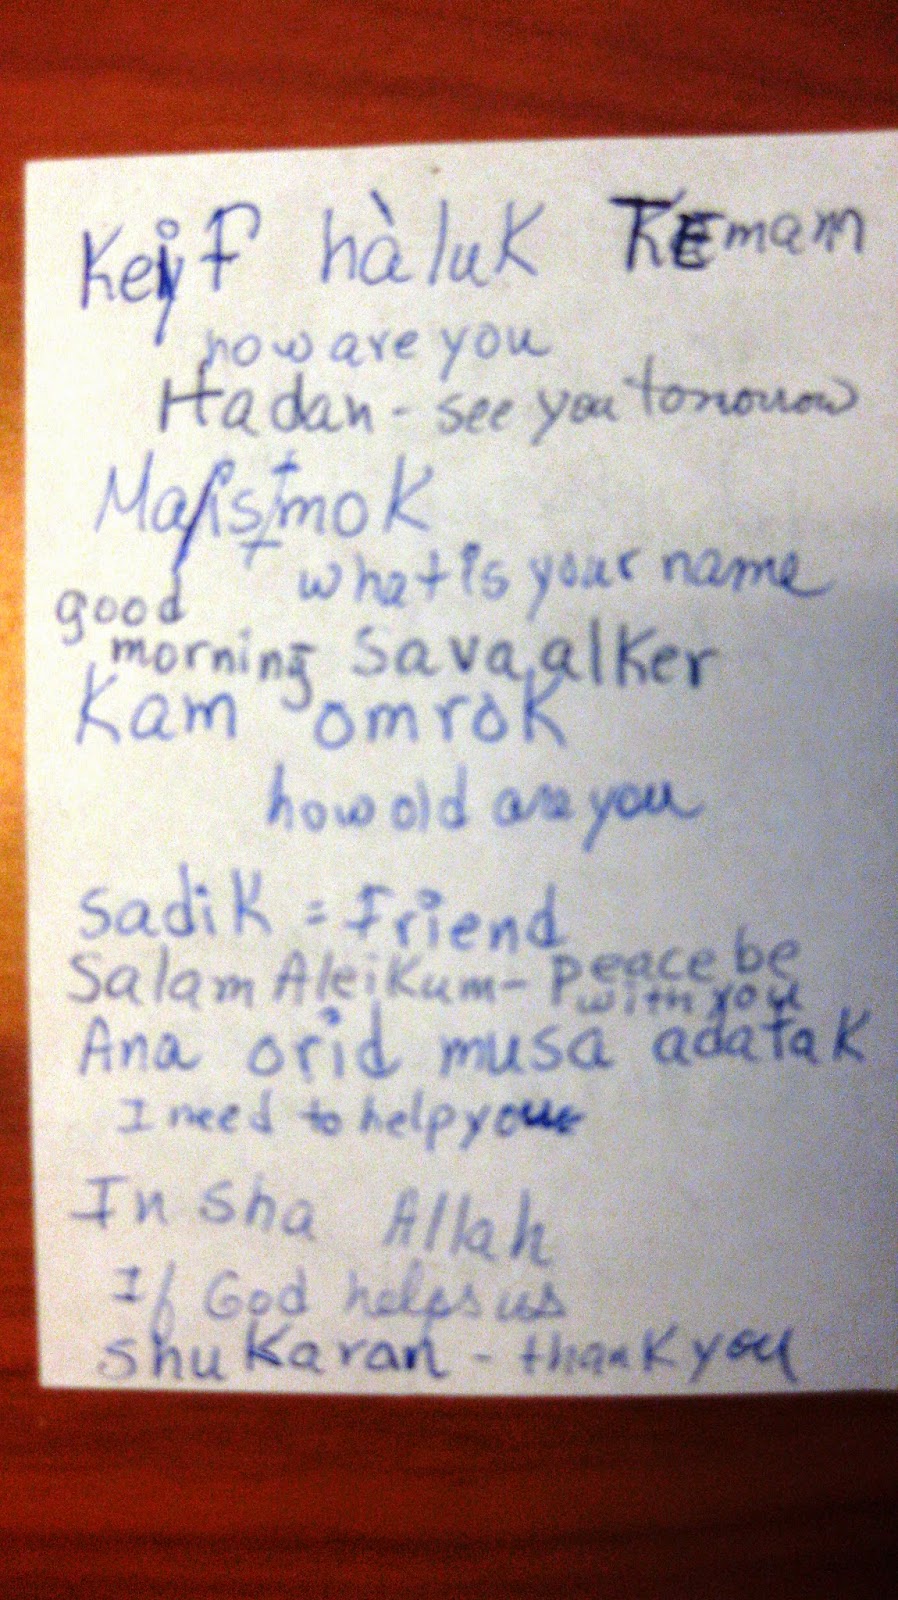 Keif hàluk TEmam
how are you
Hadan - see you tomorrow
Ma/ismok
what is your name
good
morning Sava alKer
Kam omrok
how old are you
Sadik = Friend
Salam AleiKum - Peace be
with you
Ana orid musa adatak
I need to help you
In sha Allah
If God helps us
Shukaran - thank you